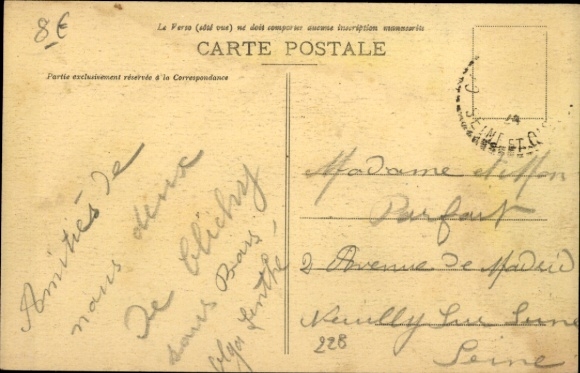 8€
Le Verso (côté vue) ne doit comporter aucune inscription manuscrite
CARTE POSTALE
Partie exclusivement réservée à la Correspondance
SEINE ET O
Amitiés de
nous deux
de Clichy
sous Bois
Olga
Madame et Mon
Parfait
2 Avenue de Madrid
Neuilly sur Seine
Seine
228